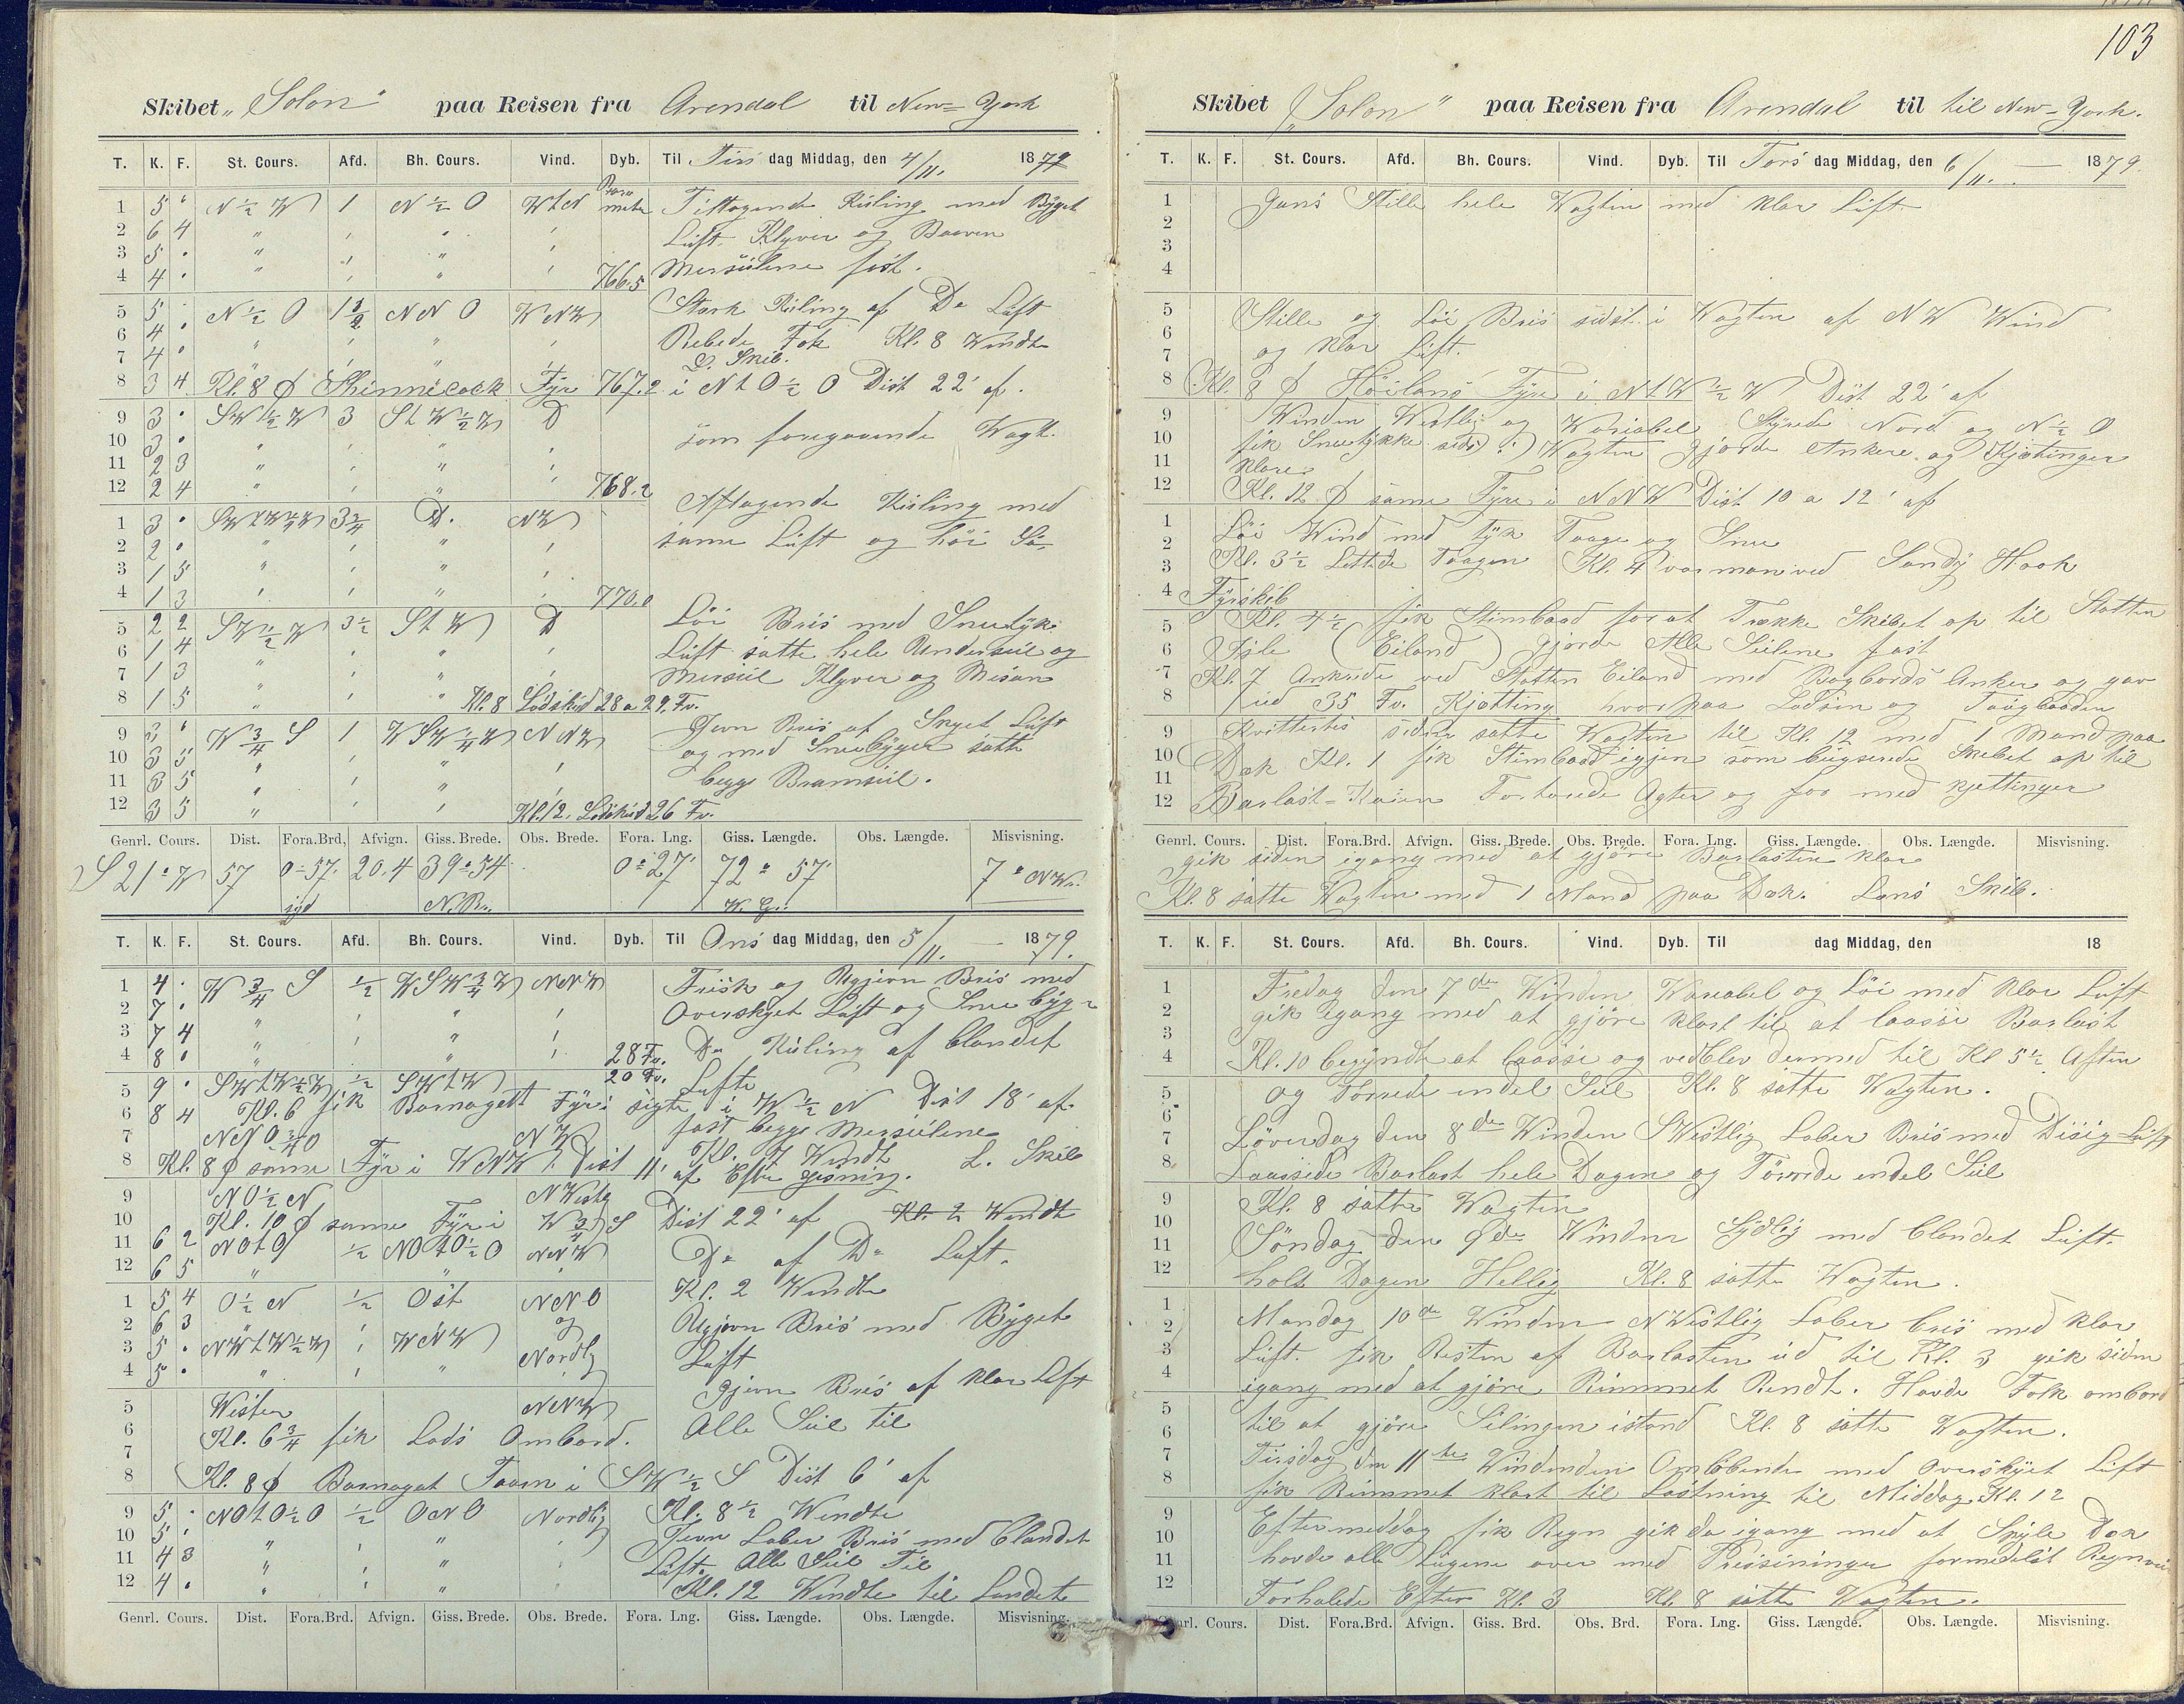 103
Skibet „Solon" paa Reisen fra Arendal til New=York
T. K. F. St. Cours. Afd. Bh. Cours. Vind. Dyb. Til Tirs dag Middag, den 4/11. 1879
Barometer
1 5 " N ½ W 1 N ½ O WtN Tiltagende Kuling med Byget
2 6 4 " " " " Luft. Klyver og Baaven
3 5 . " " " "
4 4 . " " " " 766.5 Mersseilene fast.
5 5 . N ½ O 1½ NNO WNW Stærk Kuling af Do Luft
6 4 . " " " " Rebede Fok Kl. 8 Wendte
7 4 . " " " " L. Skib.
8 3 4 Kl. 8 ϕ Shinnecock Fyr 767.2 i NtO ½ O Dist 22' af.
9 3 . SW ½ W 3 StW ½ W D som foregaaende Wagt.
10 3 . " " " "
11 2 3 " " " "
12 2 4 " " " " 768.2
Aftagende Kuling med
1 3 . SWtW ¼ W 3¾ D. NW
2 2 . " " " " samme Luft og høi Sø.
3 1 5 " " " "
4 1 3 " " " " 770.0
5 2 2 SW ½ W 3½ StW D Löi Bris med Sneetyk
6 1 4 " " " " Luft satte hele Underseil og
7 1 3 " " " " Mersseil Klyver og Misan
8 1 5 " " " Kl. 8 Lodskud 28 a 29. Fv.
9 3 " W ¾ S 1 WSW ¼ W NNW Jevn Bris af Skyet Luft
10 3 5 " " " " og med Sneebyger satte
11 3 5 " " " " begge Bramseil.
12 3 5 " " " Kl. 12. Lodskud 26 Fv.
Genrl. Cours. Dist. Fora.Brd, Afvign. Giss. Brede. Obs. Brede. Fora. Lng. Giss. Længde. Obs. Længde. Misvisning.
S 21° W 57 0°57' 20.4 39°54 0°27' 72° 57' 7° NW.
syd N.B. W. G.
T. K. F. St. Cours. Afd. Bh. Cours. Vind. Dyb. Til Ons dag Middag, den 5/11. 1879.
1 4 . W ¾ S ½ WSW ¾ W NNW Frisk og Ugjevn Bris med
2 7 . " " " " Overskyet Luft og Snee byger
3 7 4 " " " "
4 8 . " " " " 28 Fv. Do Kuling af blandet
5 9 . SWtW ½ W ½ SWtW 20 Fv. Luft
6 8 4 Kl. 6 fik Barnagett Fyr i sigte i W ½ N Dist 18' af
7 NNO ¾ O NW fast begge Mersseilene
Kl. 7 Wendt L. Skib
8 Kl. 8 ϕ samme Fyr i WNW Dist 11' af Efter gisning.
9 NO ½ N NWestlg
10 Kl. 10 ϕ samme Fyr i W ¾ S Dist 22' af Kl. 2 Wendte
11 6 2 NOtO ½ NOtO ½ O NNW Do af Do Luft.
12 6 5 " "
1 5 4 O ½ N ½ Öst NNO Kl. 2 Wendte
2 6 3 " og Ugjevn Bris med Byget
3 5 . NWtW ½ W " WNW Nordlg Luft
4 5 . " " "
gjevn Bris af klar Luft
5 Westen NNW
6 Kl. 6¾ fik Lods Ombord. Alle Seil til
7
8 Kl. 8 ϕ Barnagat Taarn i SW ½ S Dist 6' af
9 5 . NOtO ½ O ½ ONO Nordlig Kl. 8½ Wendte
10 5 . " " " " Jevn Laber Bris med blandet
11 4 3 " " " " Luft. Alle Seil Til
12 4 . " " " Kl. 12 Wendte til Landet
Genrl. Cours. Dist. Fora.Brd. Afvign. Giss. Brede. Obs. Brede. Fora. Lng. Giss. Længde. Obs. Længde. Misvisning.
Skibet „Solon" paa Reisen fra Arendal til til New=York.
T. K. F. St. Cours. Afd. Bh. Cours. Vind. Dyb. Til Tors dag Middag, den 6/11. 1879.
1 Gans Stille hele Wagten med klar Luft
2
3
4
5 Stille og Löi Bris sidst i Wagten af NW Wind
6
7 og klar Luft.
8 Kl. 8 ϕ Höilans Fyre i NtW ½ W Dist 22' af
9 Winden Westlig og Wariabel Styrede Nord og N ½ O
10 fik Sneetykke sidst i Wagten gjorde Ankere og Kjætinger
11 klare
12 Kl. 12 ϕ samme Fyre i NNW Dist 10 a 12' af
1 Löi Wind med tyk Taage og Snee
2
3 Kl. 3½ Lettede Taagen Kl. 4 var man ved Sandy Hook
4 Fyrskib
5 Kl. 4½ fik Stimbaad for at Trække Skibet op til Statten
6 Isle (Eiland) gjorde Alle Seilene fast
7 Kl. 7 Ankrede ved Statten Eiland med Bagbords Anker og gav
8 ud 35 Fv. Kjætting hvorpaa Lodsen og Taugbaaden
9 Kvittertes siden satte Wagten til Kl. 12 med 1 Mand paa
10 Dæk Kl. 1 fik Stimbaad igjen som bugserede Skibet op til
11
12 Barlast=Kaien Fortøiede Agter og for med kjettinger
Genrl. Cours. Dist. Fora.Brd. Afvign. Giss. Brede. Obs. Brede. Fora. Lng. Giss. Længde. Obs. Længde. Misvisning.
gik siden igang med at gjøre Barlasten klar
Kl. 8 satte Wagten med 1 Mand paa Dæk. Læns Skib.
T. K. F. St. Cours. Afd. Bh. Cours. Vind. Dyb. Til dag Middag, den 18
1 Fredag den 7de Winden Wariabel og Löi med klar Luft
2 gik igang med at gjöre klart til at laasse Barlast
3
4 Kl. 10 begyndte at laasse og vedblev dermed til Kl 5½ Aften
5 og Tørrede endel Seil Kl. 8 satte Wagten.
6
7 Löverdag den 8de Winden SWestlig Laber Bris med Disig Luft
8 Laassede Barlast hele Dagen og Törrede endel Seil
9 Kl. 8 satte Wagten
10
11 Söndag den 9de Winden Sydlig med blandet Luft.
12 holt Dagen Hellig Kl. 8 satte Wagten.
1 Mandag 10de Winden NWestlig Laber bris med klar
2
3 Luft. fik Resten af Barlasten ud til Kl. 3 gik siden
4 igang med at gjöre Rummet Rendt. Havde Folk ombord
5
6 til at gjöre Silingen istand Kl. 8 satte Wagten.
7 Tirsdag den 11te Windenden Omløbende med Overskyet Luft
8 fik Rummet klart til Lastning til Middag Kl. 12
9 Eftermeddag fik Regn gik da igang med at Spyle Dæk
10
11 havde alle Lugene over med Presseninger formedelst Regnveir
12 Forhalede Efter Kl. 3 Kl. 8 satte Wagten.
Genrl. Cours. Dist. Fora.Brd. Afvign. Giss. Brd. Obs. Brd. Fora. Lng. Giss. Længde. Obs. Længde. Misvisning.